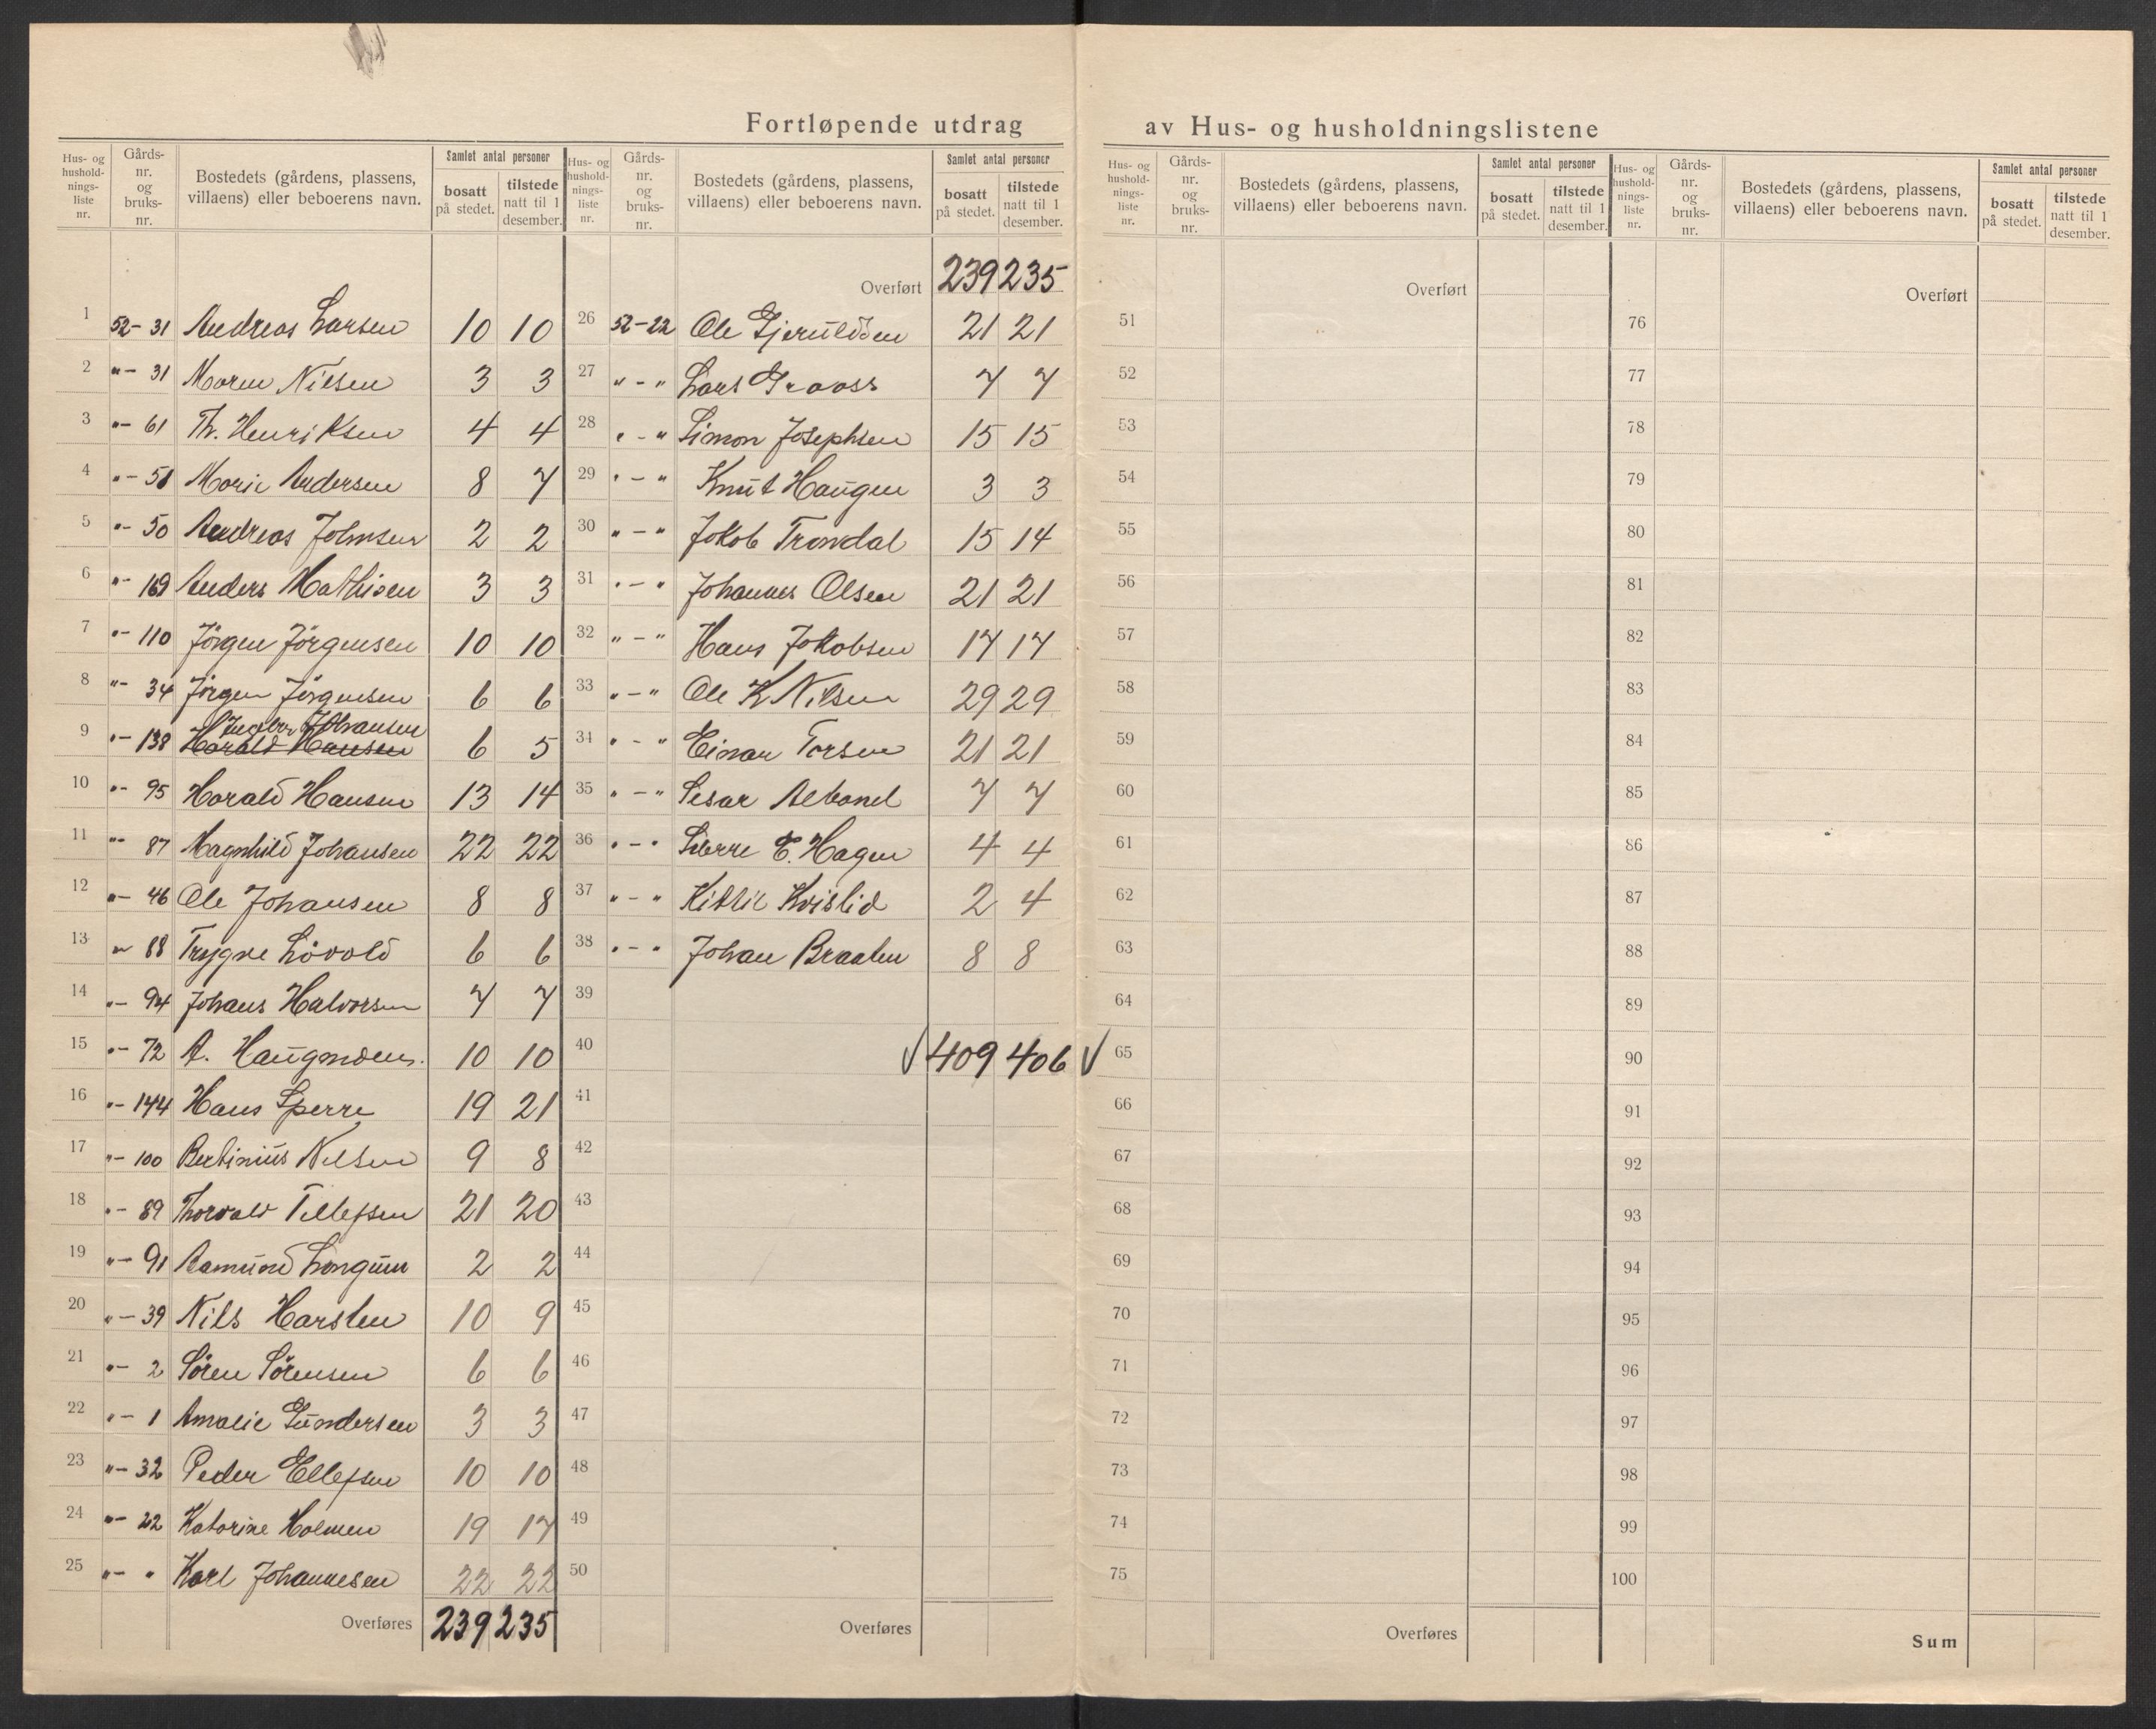 Fortløpende utdrag av Hus- og husholdningslistene
Hus- og husholdningsliste nr.
Gårds-nr. og bruks-nr.
Bostedets (gårdens, plassens, villaens) eller beboerens navn.
Samlet antal personer
bosatt på stedet.
tilstede natt til 1 desember.
1 52-31 Andreas Larsen 10 10
2 "- 31 Maren Nilsen 3 3
3 "- 61 Th. Henriksen 4 4
4 "- 51 Marie Andersen 8 7
5 "- 50 Andreas Johnsen 2 2
6 "- 169 Anders Mathisen 3 3
7 "- 110 Jörgen Jörgensen 10 10
8 "- 34 Jörgen Jörgensen 6 6
Ingebr. Johansen
9 "- 138 Harald Hansen 6 5
10 "- 95 Harald Hansen 13 14
11 "- 87 Magnhild Johansen 22 22
12 "- 46 Ole Johansen 8 8
13 "- 88 Trygve Lövold 6 6
14 "- 94 Johans Halvorsen 7 7
15 "- 72 A. Haugmoen. 10 10
16 "- 144 Hans Sperre 19 21
17 "- 100 Bertinius Nilsen 9 8
18 "- 89 Thorvald Tellefsen 21 20
19 "- 91 Aamund Longum 2 2
20 "- 39 Nils Harsten 10 9
21 "- 2 Sören Sörensen 6 6
22 "- 1 Amalie Gundersen 3 3
23 "- 32 Peder Ellefsen 10 10
24 "- 22 Katarine Holmen 19 17
25 "- " Karl Johannesen 22 22
Overføres 239 235
Hus- og husholdningsliste nr.
Gårds-nr. og bruks-nr.
Bostedets (gårdens, plassens, villaens) eller beboerens navn.
Samlet antal personer
bosatt på stedet.
tilstede natt til 1 desember.
Overført 239 235
26 52-22 Ole Gjeruldsen 21 21
27 "-" Lars Graass 7 7
28 "-" Simon Josephsen 15 15
29 "-" Knut Haugen 3 3
30 "-" Jakob Trondal 15 14
31 "-" Johannes Olsen 21 21
32 "-" Hans Jakobsen 17 17
33 "-" Ole K Nilsen 29 29
34 "-" Einar Torsen 21 21
35 "-" 7 7
36 "-" Sverre E. Hagen 4 4
37 "-" Kittil Kvislid 2 4
38 "-" Johan Braaten 8 8
39
40 √ 409 406 √
41
42
43
44
45
46
47
48
49
50
Overføres
Hus- og husholdningsliste nr.
Gårds-nr. og bruks-nr.
Bostedets (gårdens, plassens, villaens) eller beboerens navn.
Samlet antal personer
bosatt på stedet.
tilstede natt til 1 desember.
Overført
51
52
53
54
55
56
57
58
59
60
61
62
63
64
65
66
67
68
69
70
71
72
73
74
75
Overføres
Hus- og husholdningsliste nr.
Gårds-nr. og bruks-nr.
Bostedets (gårdens, plassens, villaens) eller beboerens navn.
Samlet antal personer
bosatt på stedet.
tilstede natt til 1 desember.
Overført
76
77
78
79
80
81
82
83
84
85
86
87
88
89
90
91
92
93
94
95
96
97
98
99
100
Sum